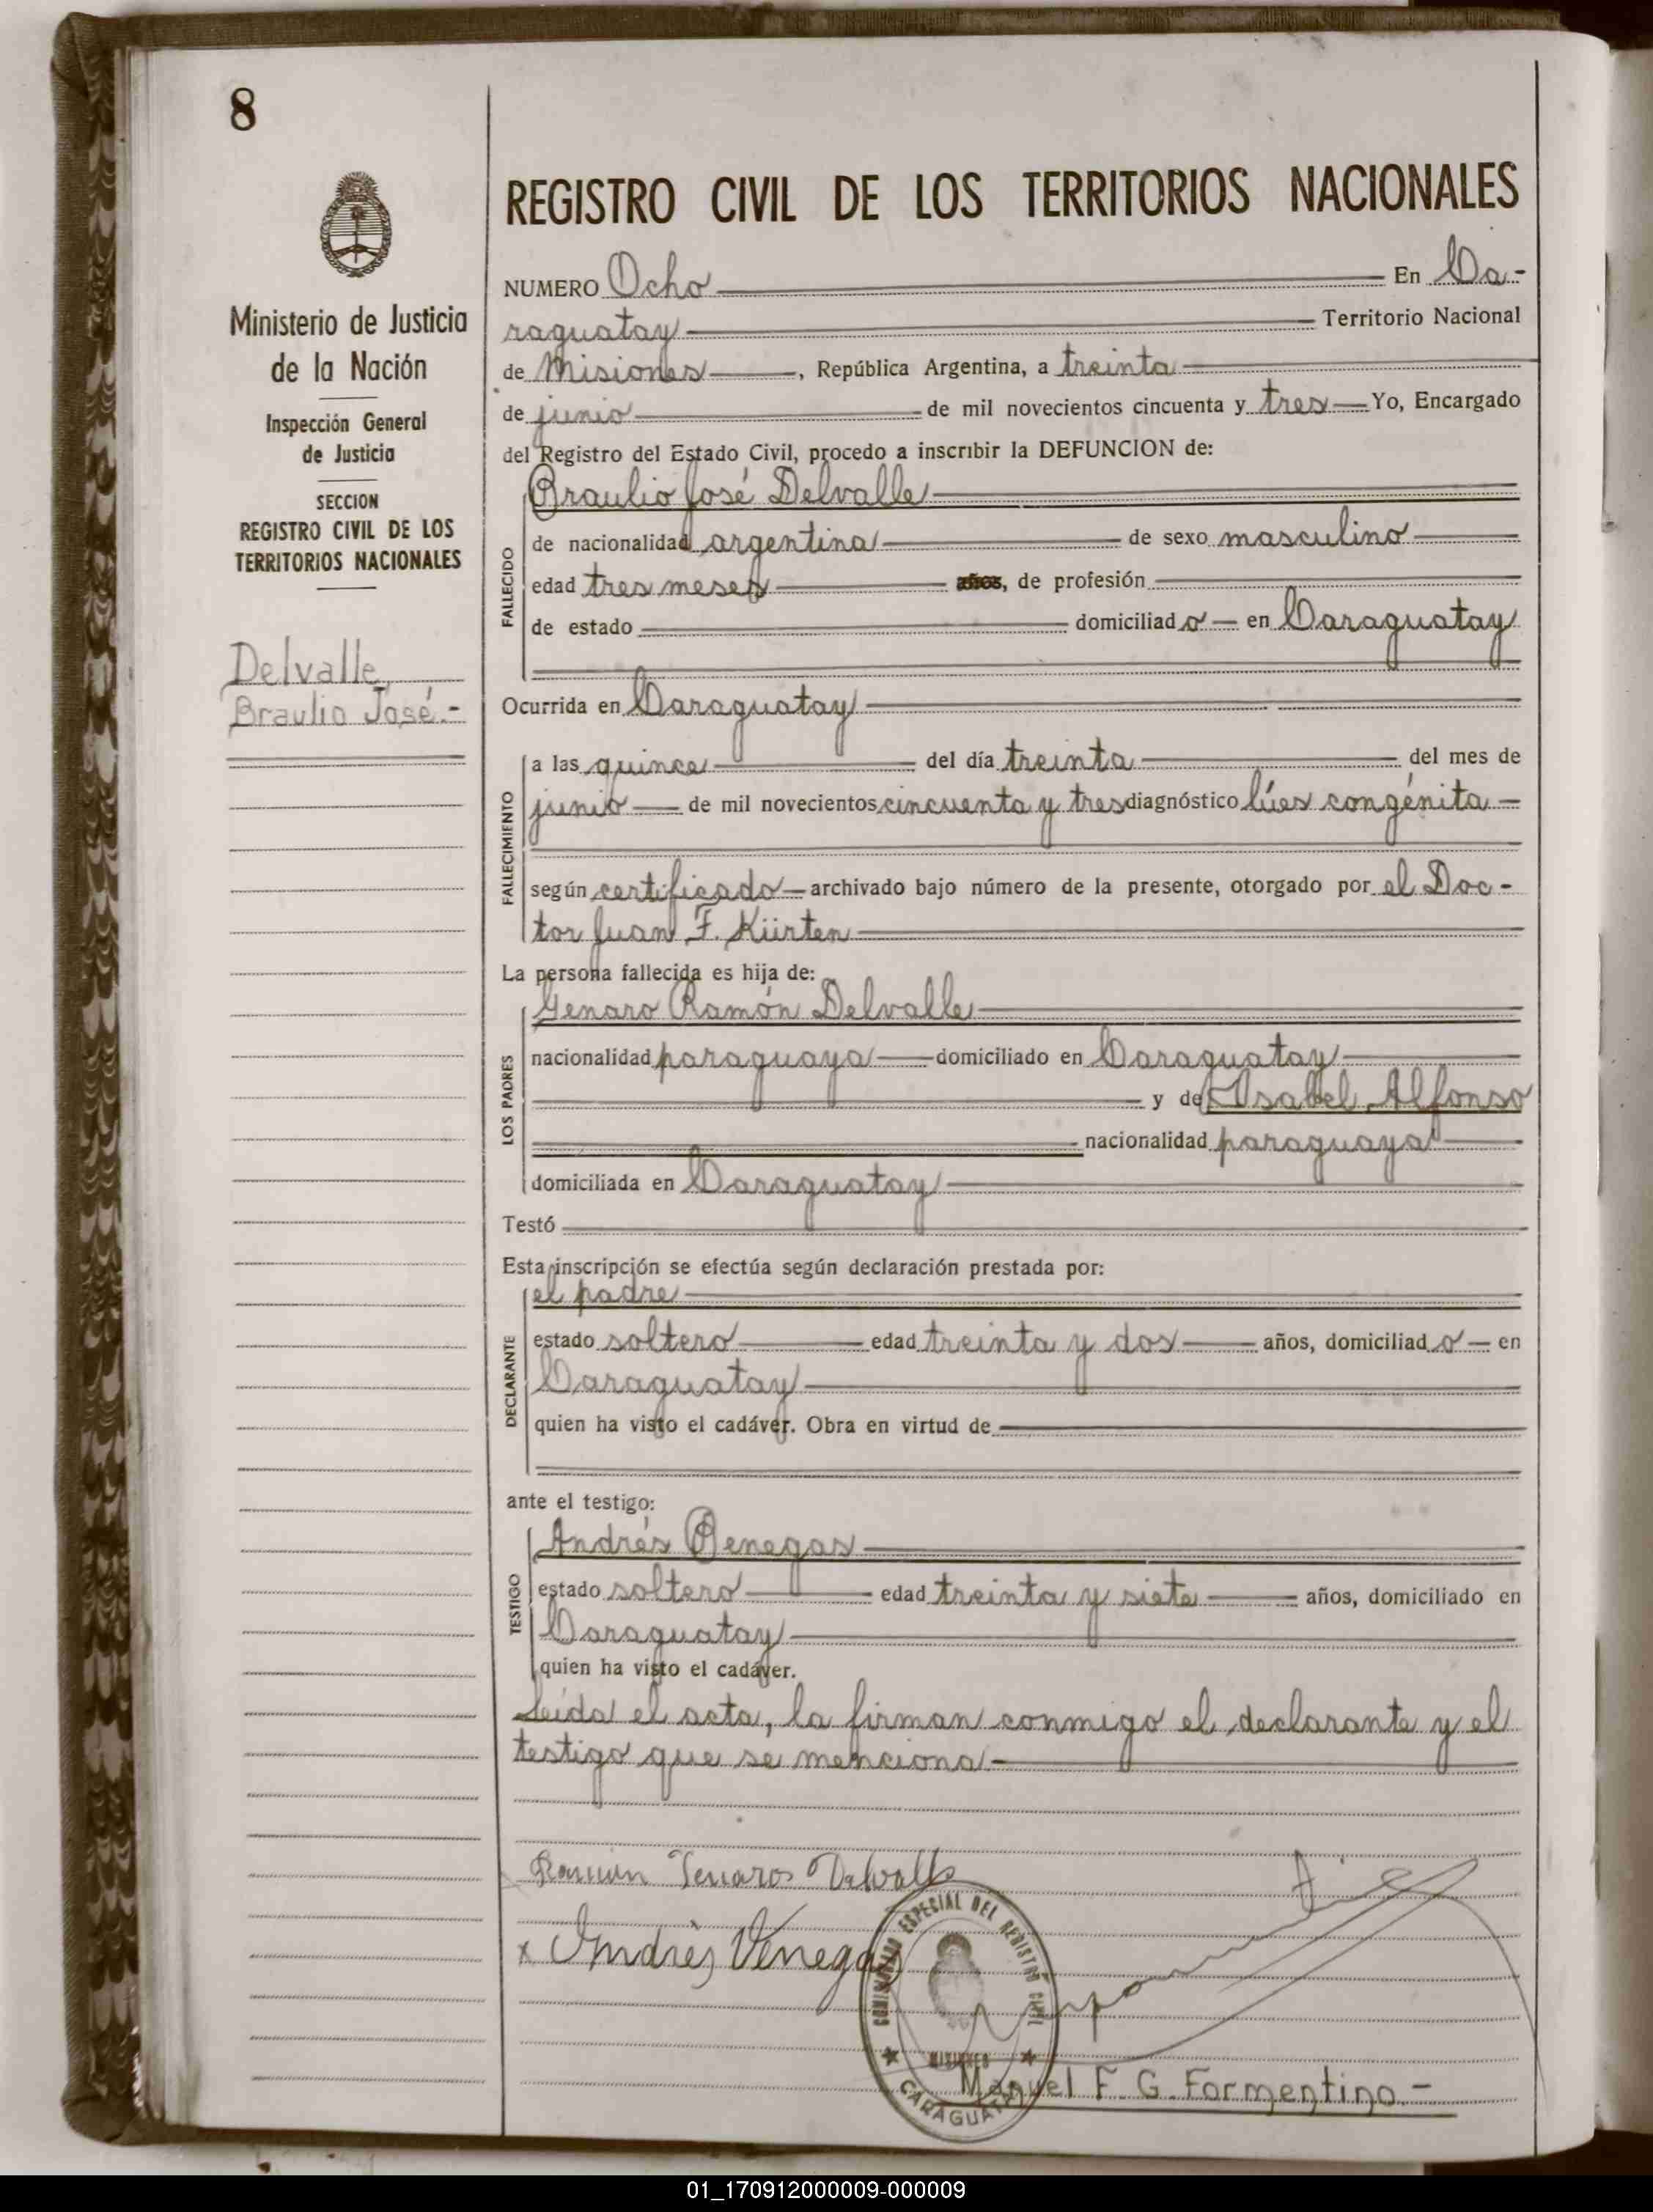 8
Ministerio de Justicia
de la Nación
Inspección General
de Justicia
SECCION
REGISTRO CIVIL DE LOS
TERRITORIOS NACIONALES
Delvalle,
Braulio José.-
REGISTRO CIVIL DE LOS TERRITORIOS NACIONALES
NUMERO Ocho En Ca-
raguatay Territorio Nacional
de Misiones, República Argentina, a treinta
de junio de mil novecientos cincuenta y tres Yo, Encargado
del Registro del Estado Civil, procedo a inscribir la DEFUNCION de:
FALLECIDO
Braulio José Delvalle
de nacionalidad argentina de sexo masculino
edad tres meses años, de profesión
de estado domiciliado en Caraguatay
Ocurrida en Caraguatay
FALLECIMIENTO
a las quince del día treinta del mes de
junio de mil novecientos cincuenta y tres diagnóstico lúes congénita
según certificado archivado bajo número de la presente, otorgado por el Doc-
tor Juan F. Kürten
La persona fallecida es hija de:
LOS PADRES
Genaro Ramón Delvalle
nacionalidad paraguaya domiciliado en Caraguatay
y de Isabel Alfonso
nacionalidad paraguaya
domiciliada en Caraguatay
Testó
Esta inscripción se efectúa según declaración prestada por:
DECLARANTE
el padre
estado soltero edad treinta y dos años, domiciliado en
Caraguatay
quien ha visto el cadáver. Obra en virtud de
ante el testigo:
TESTIGO
Andrés Benegas
estado soltero edad treinta y siete años, domiciliado en
Caraguatay
quien ha visto el cadáver.
Leída el acta, la firman conmigo el declarante y el
testigo que se menciona.-
Ramún Genaros Delvalle
x Andrés Venegas
ESPECIAL DEL REGISTRO CIVIL
MISIONES
CARAGUATAY
Manuel F. G. Formentino.-
01_170912000009-000009